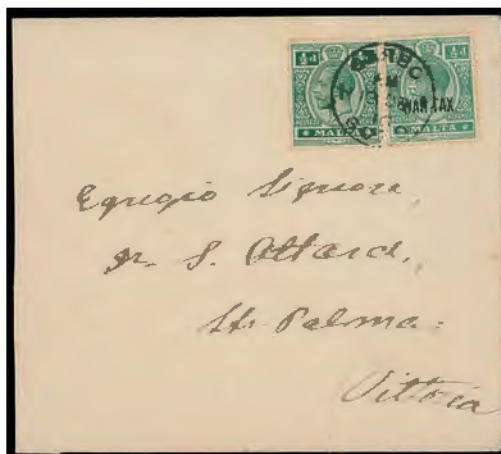 ½d ½d
WAR TAX
MALTA MALTA
Egregio Signore
Dr. S. Attard,
Str. Palma:
Vittoria